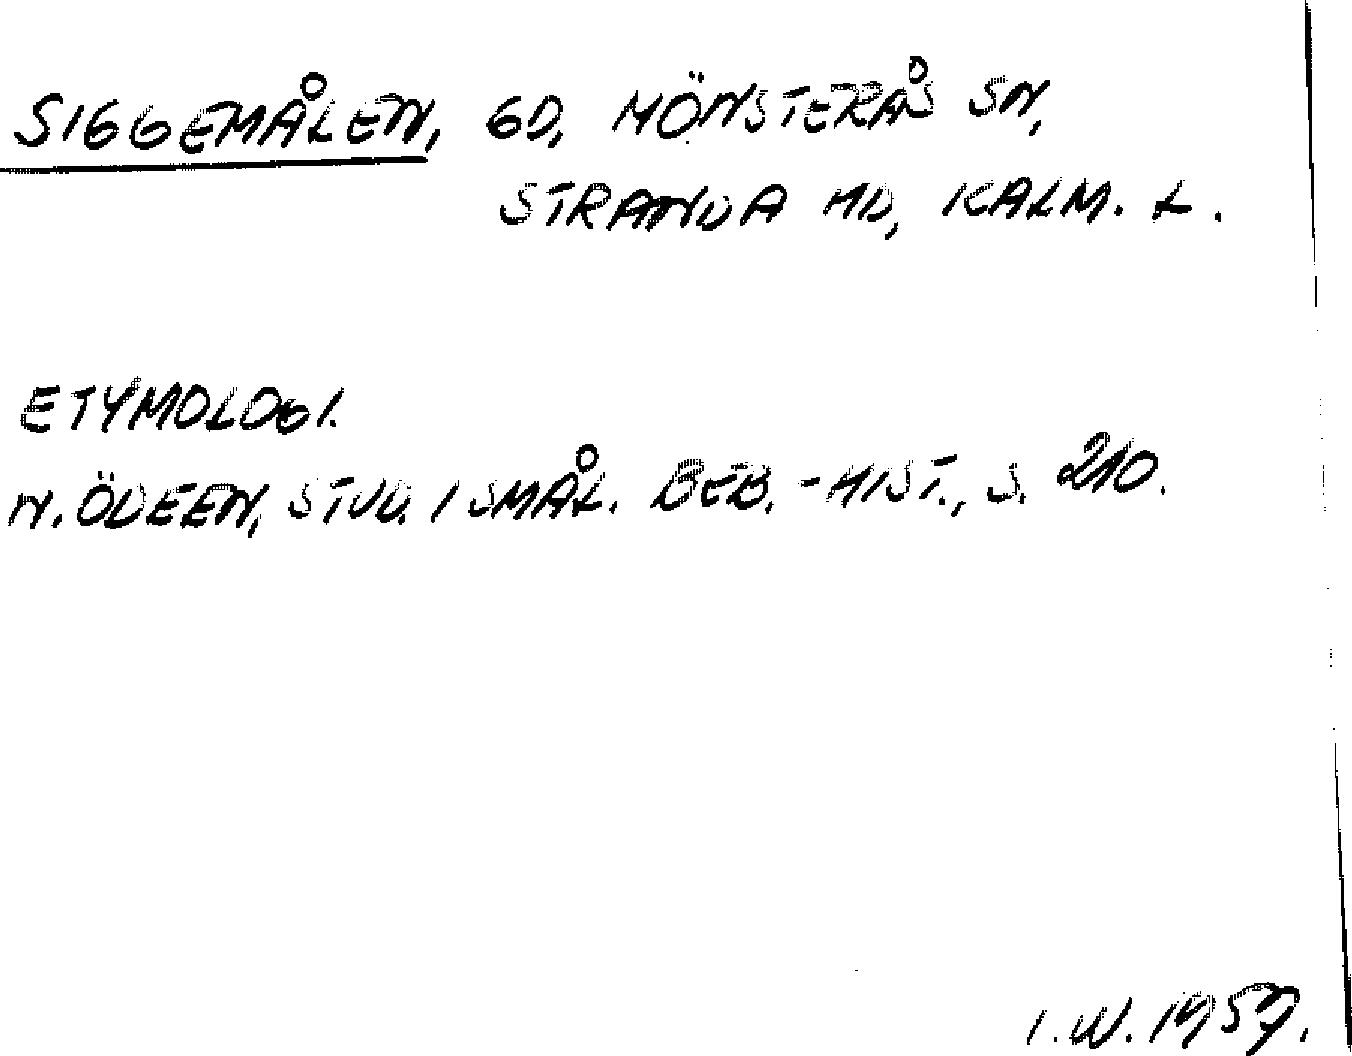 SIGGEMÅLEN, GD, MÖNSTERÅS SN,
STRANDA HD, KALM. L.
ETYMOLOGI.
N. ÖDEEN, STUD. I SMÅL. BEB.-HIST., S. 210.
I.W. 1957.